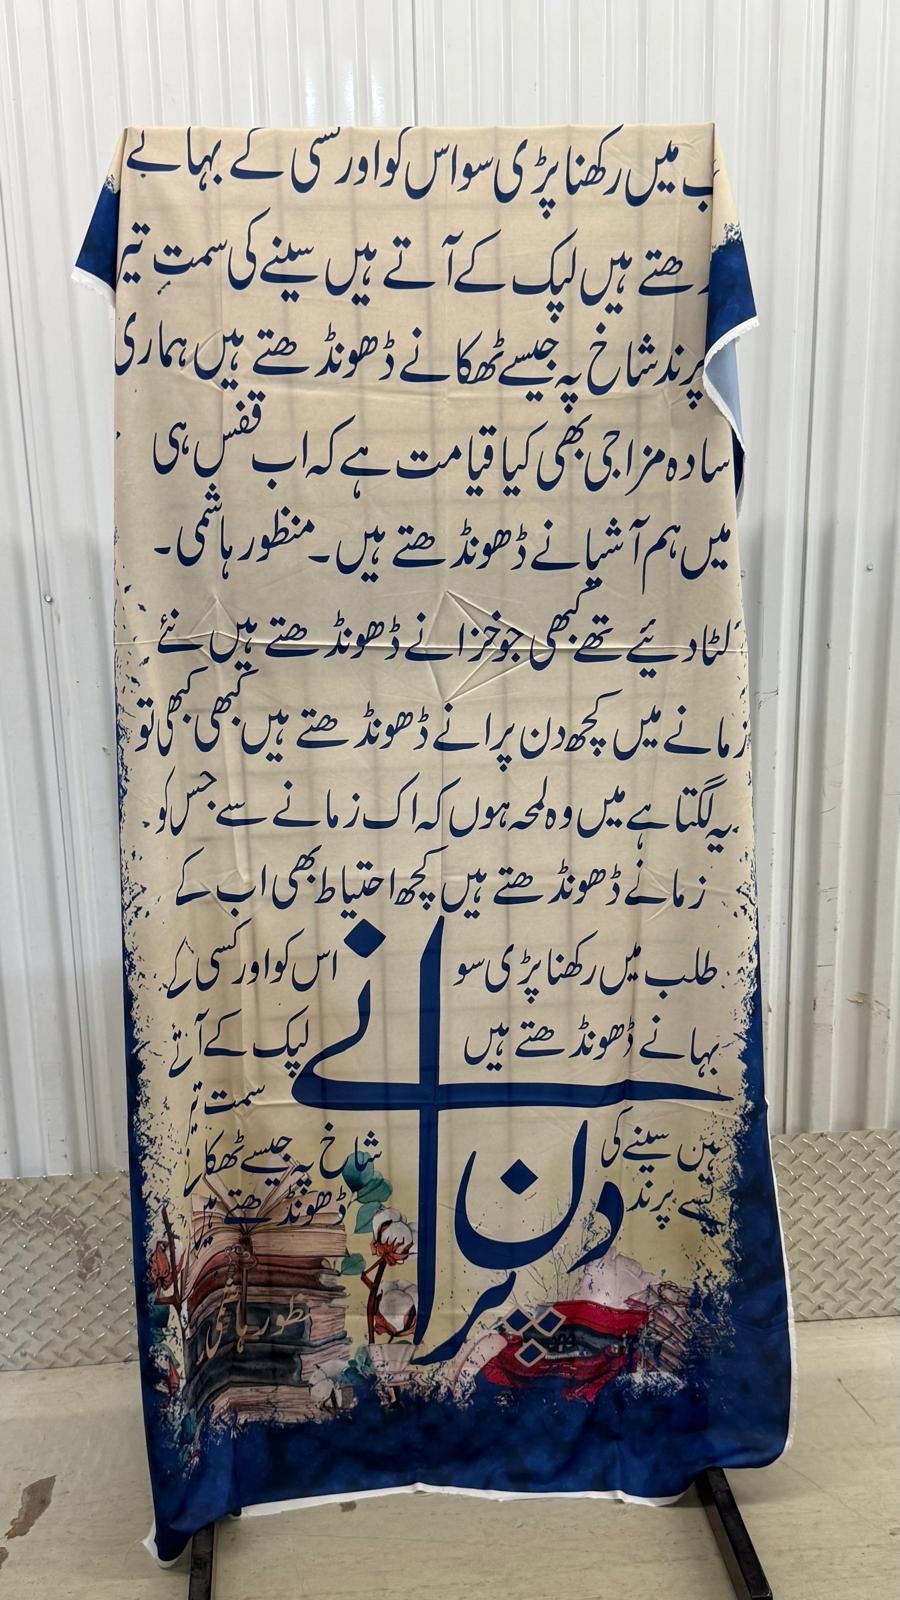 میں رکھنا پڑی سو اس کو اور کسی کے بہانے
ھتے ہیں لپک کے آتے ہیں سینے کی سمتِ تیر
پرند شاخ پہ جیسے ٹھکانے ڈھونڈھتے ہیں ہماری
سادہ مزاجی بھی کیا قیامت ہے کہ اب قفس ہی
میں ہم آشیانے ڈھونڈھتے ہیں۔ منظور ہاشمی۔
لٹا دئیے تھے کبھی جو خزانے ڈھونڈھتے ہیں نئے
زمانے میں کچھ دن پرانے ڈھونڈھتے ہیں کبھی کبھی تو
یہ لگتا ہے میں وہ لمحہ ہوں کہ اک زمانے سے جس کو
زمانے ڈھونڈھتے ہیں کچھ احتیاط بھی اب کے
طلب میں رکھنا پڑی سو اس کو اور کسی کے
بہانے ڈھونڈھتے ہیں لپک کے آتے
ہیں سینے کی سمتِ تیر
جیسے پرند شاخ پہ جیسے ٹھکانے
ڈھونڈھتے ہیں
پرانے دن
منظور ہاشمی